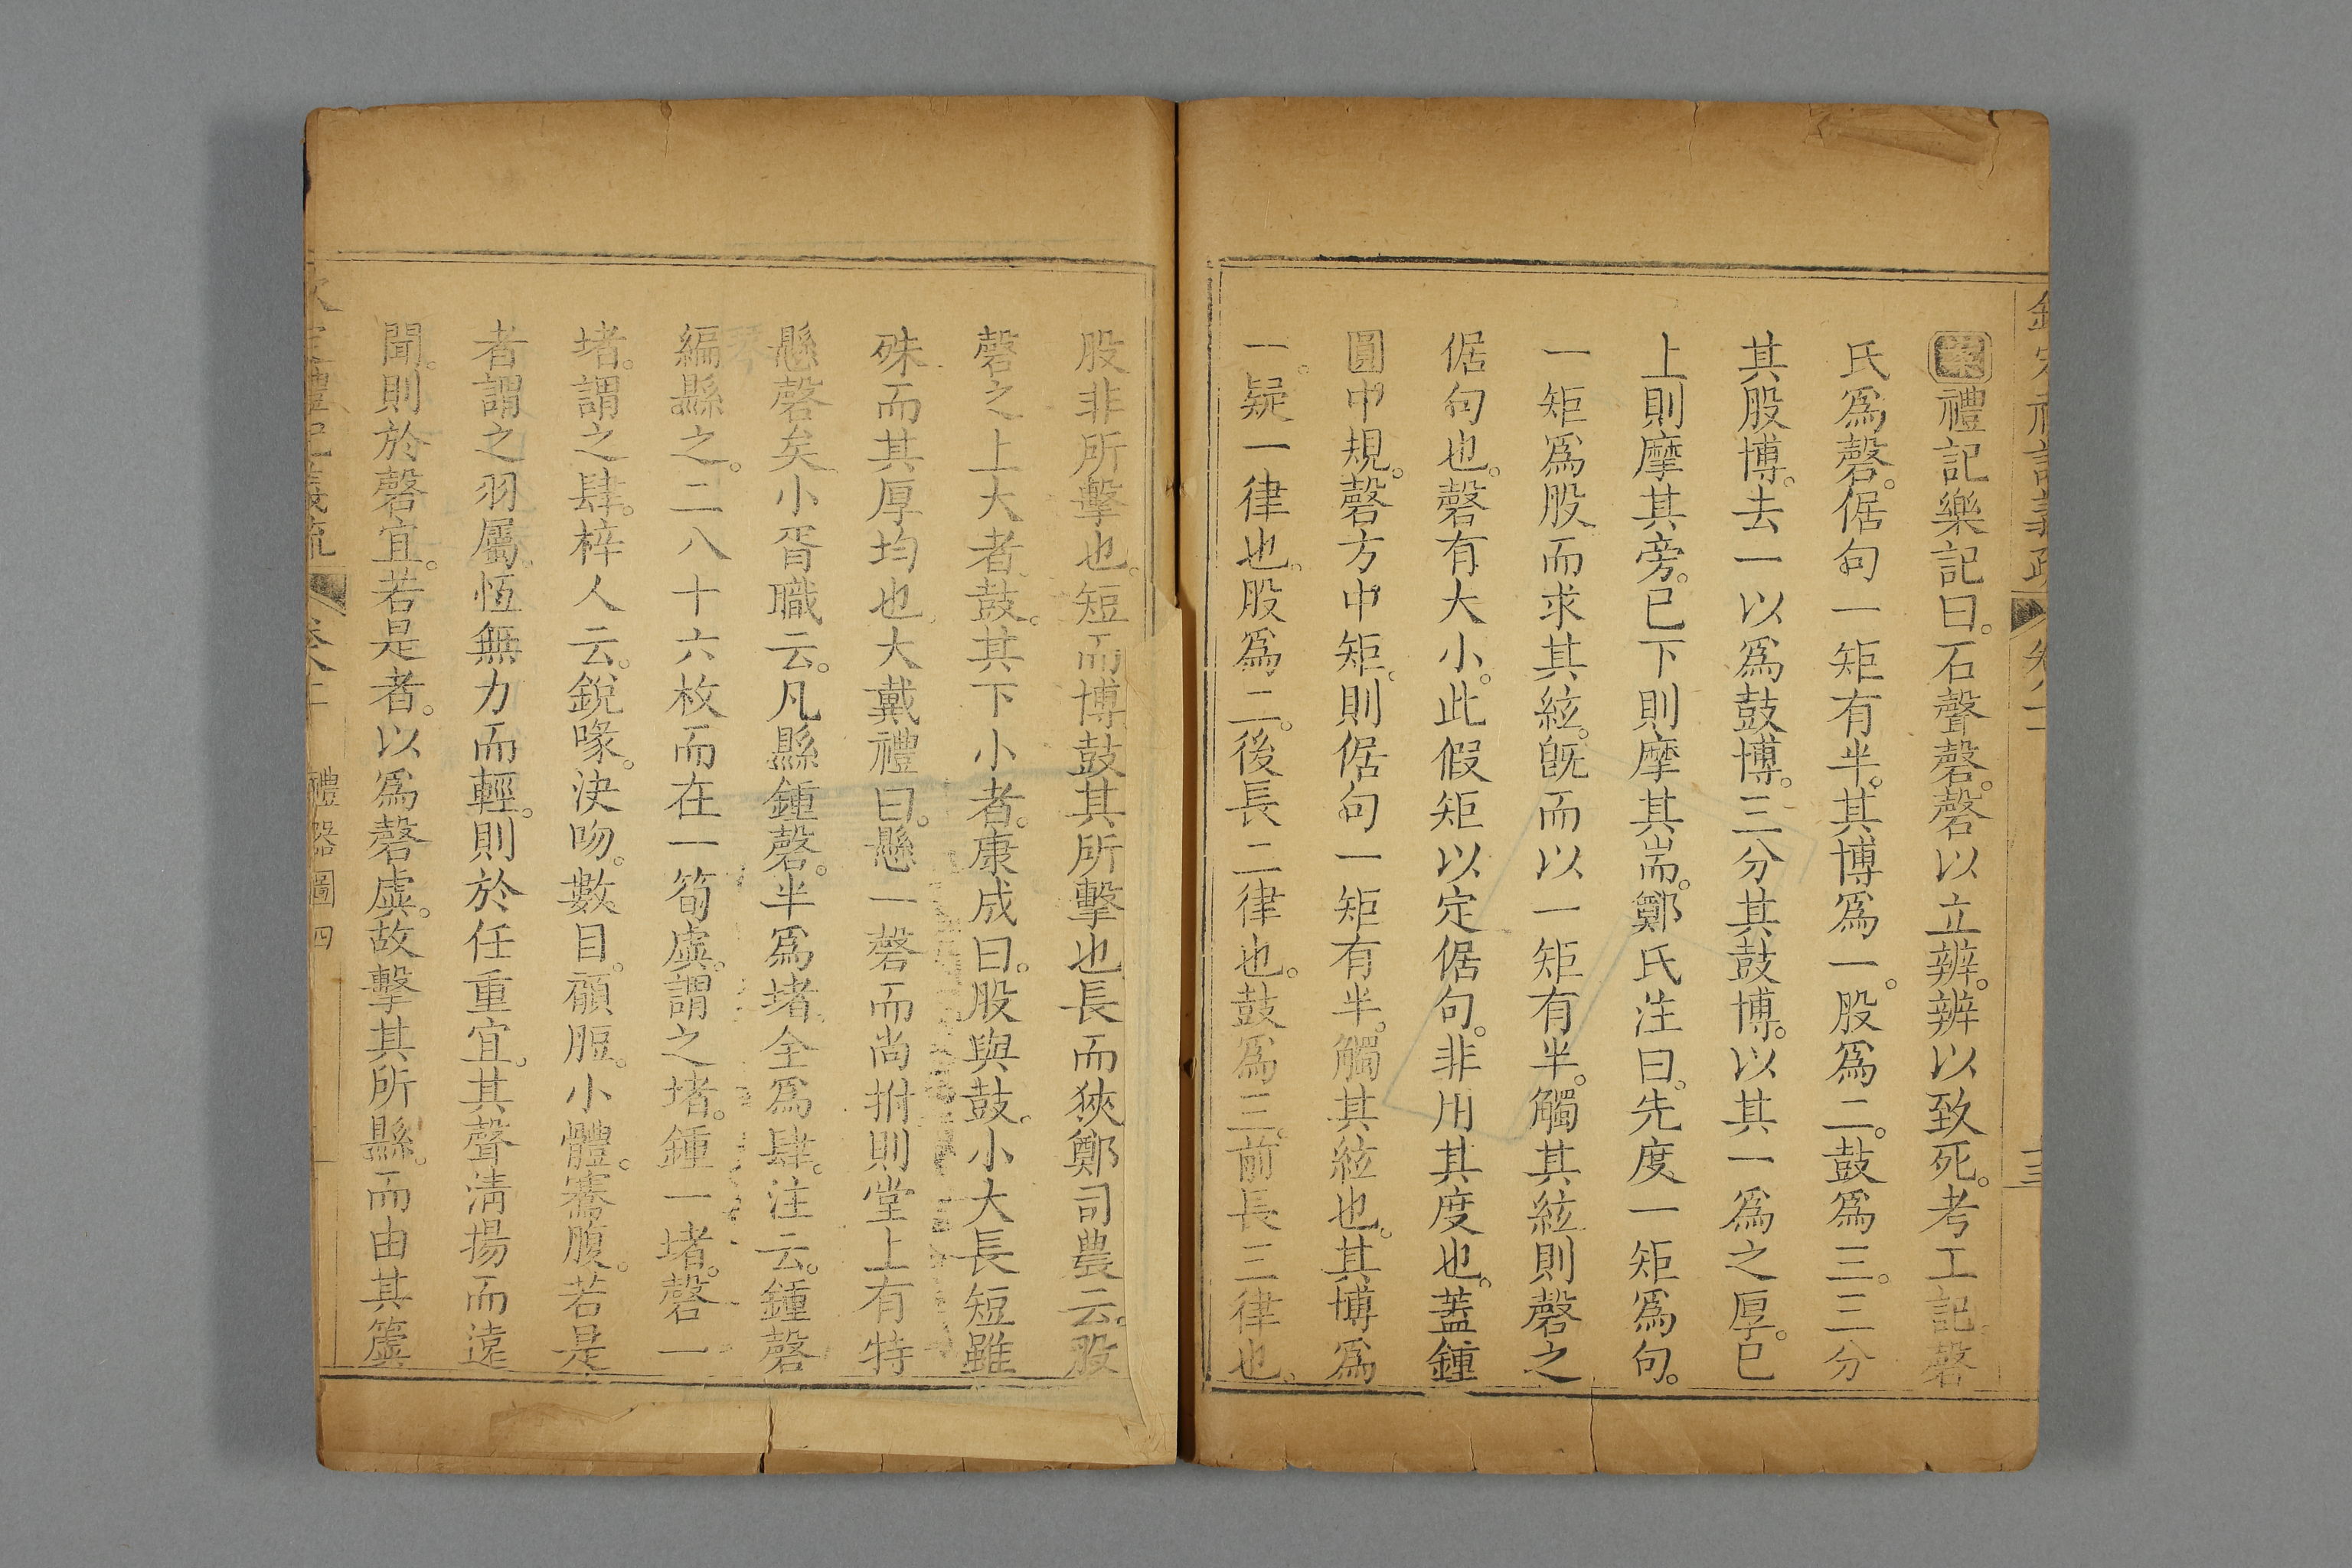 欽定禮記義疏 卷八十一 十三
案禮記樂記曰。石聲磬。磬以立辨。辨以致死。考工記。磬
氏爲磬。倨句一矩有半。其博爲一。股爲二。鼓爲三。三分
其股博。去一以爲鼓博。三分其鼓博。以其一爲之厚。已
上則摩其旁。已下則摩其耑。鄭氏注曰。先度一矩爲句。
一矩爲股而求其絃。旣而以一矩有半。觸其絃則磬之
倨句也。磬有大小。此假矩以定倨句。非用其度也。蓋鍾
圓中規。磬方中矩。則倨句一矩有半。觸其絃也。其博爲
一。疑一律也。股爲二。後長二律也。鼓爲三。前長三律也。
股非所擊也。短而博鼓其所擊也長而狹鄭司農云。股
磬之上大者。鼓。其下小者。康成曰。股與鼓。小大長短雖
殊而其厚均也。大戴禮曰。懸一磬而尚拊則堂上有特
懸磬矣。小胥職云。凡縣鍾磬。半爲堵。全爲肆。注云。鍾磬
編縣之。二八十六枚而在一筍虡。謂之堵。鍾一堵。磬一
堵。謂之肆。梓人云。銳喙。決吻。數目。顅脰。小體。騫腹。若是
者謂之羽屬。恆無力而輕。則於任重宜。其聲淸揚而遠
聞。則於磬宜。若是者。以爲磬虡。故擊其所縣。而由其簴
禮記義疏 卷八十一 禮器圖四